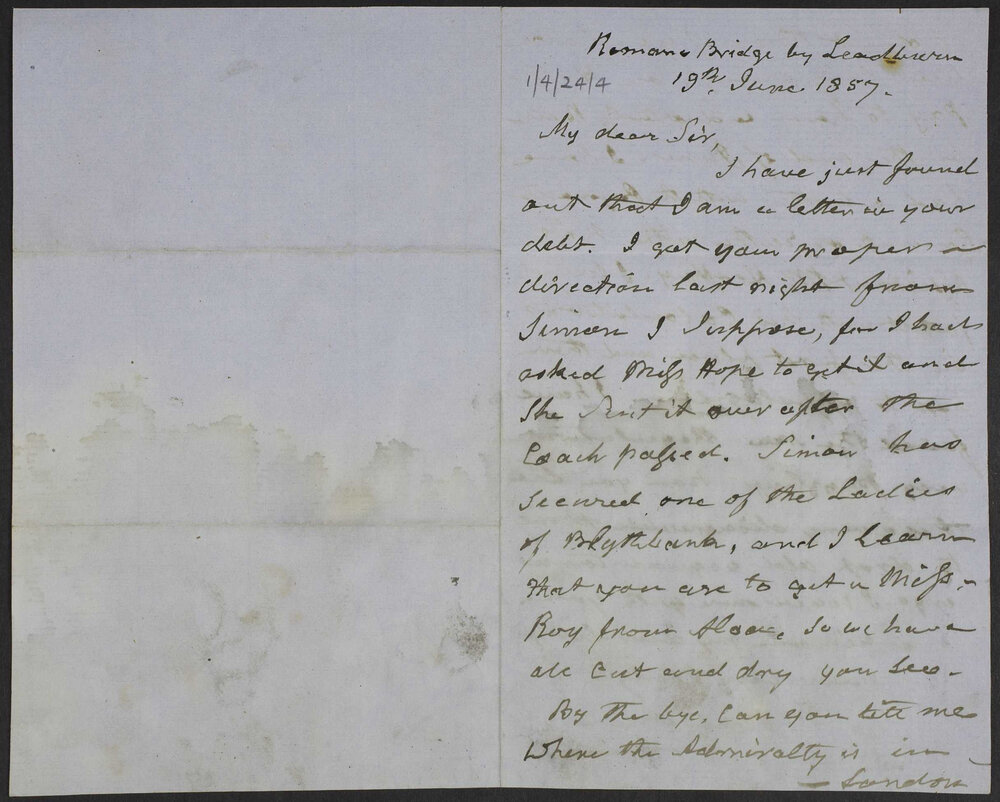 Romano Bridge by Leadburn
1/4/24/4
19th June 1857.
My dear Sir,
I have just found
out that I am a letter in your
debt. I got your proper
direction last night from
Simon I suppose, for I had
asked Miss Hope to get it and
She Sent it over after the
Coach passed. Simon has
Secured one of the Ladies
of Blythbank, and I learn
that you are to get a Miss
Roy from Aloa, So we have
all Cut and dry you See.
By the bye, Can you tell me
Where the Admiralty is in
London